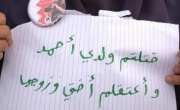 قتلتم ولدي أحمد
وأعتقلتم أختي وزوجها